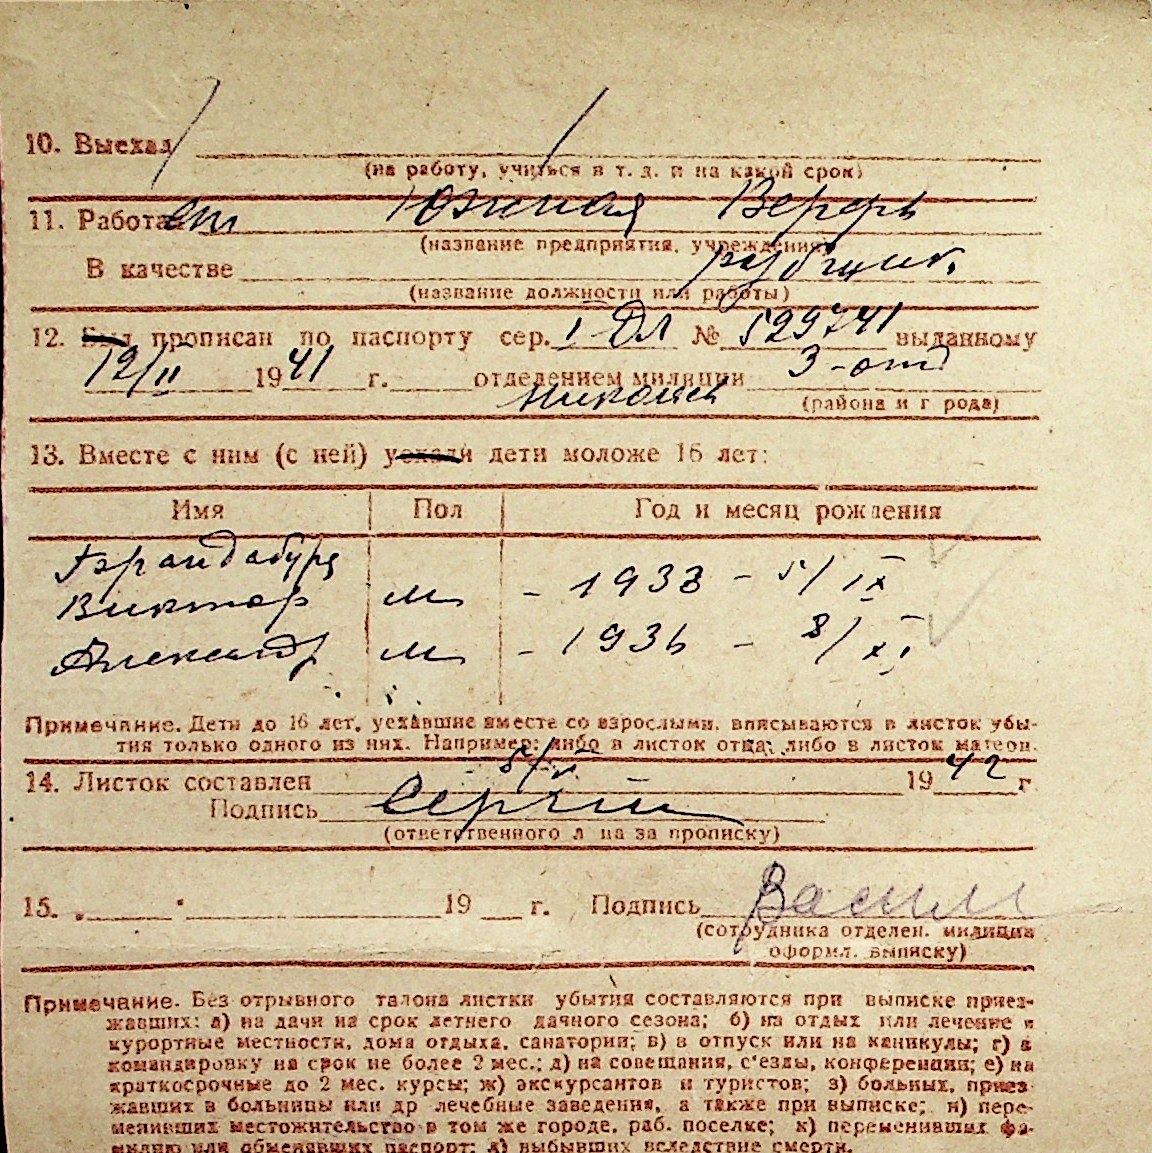 10. Выехал
(на работу, учиться и т. д. и на какой срок)
11. Работает Южная Верфь
(название предприятия, учреждения)
В качестве
(название должности или работы)
12. Был прописан по паспорту сер. I-ДЛ № 529741 выданному
12/II 1941 г. отделением милиции 3-отд
Николаев (района и г рода)
13. Вместе с ним (с ней) уехали дети моложе 16 лет:
Имя Пол Год и месяц рождения
Брандабура
Виктор м - 1933 - 5/IX
Александр м - 1936 - 8/XI
Примечание. Дети до 16 лет, уехавшие вместе со взрослыми, вписываются в листок убы-
тия только одного из них. Например: либо в листок отца, либо в листок матери.
14. Листок составлен 5/V 1942 г
Подпись
(ответственного л ца за прописку)
15. 19 г. Подпись Васили
(сотрудника отделен. милиции
оформл. выписку)
Примечание. Без отрывного талона листки убытия составляются при выписке приез-
жавших: а) на дачи на срок летнего дачного сезона; б) на отдых или лечение в
курортные местности, дома отдыха, санатории; в) в отпуск или на каникулы; г) в
командировку на срок не более 2 мес.; д) на совещания, с'езды, конференции; е) на
краткосрочные до 2 мес. курсы; ж) экскурсантов и туристов; з) больных, приез-
жавших в больницы или др лечебные заведения, а также при выписке; и) пере-
менивших местожительство в том же городе, раб. поселке; к) переменивших фа-
милию или обменявших паспорт; л) выбывших вследствие смерти.